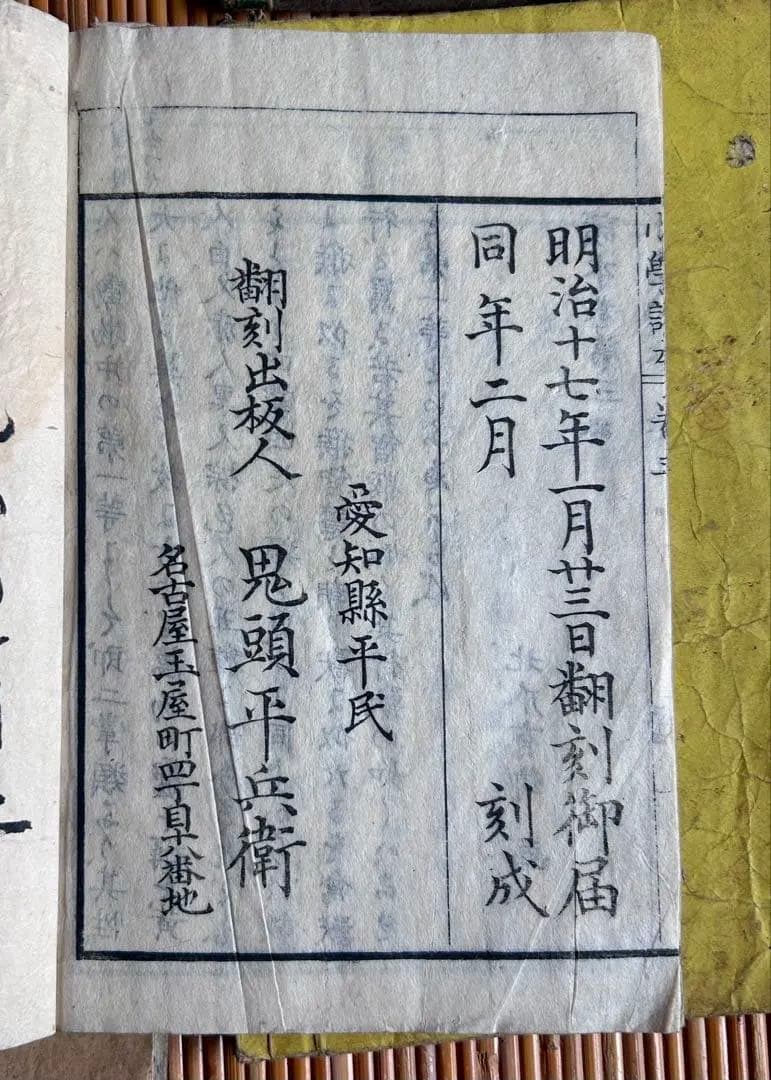 小學讀本
明治十七年一月廿三日翻刻御届
同年二月 刻成
愛知縣平民
翻刻出板人 鬼頭平兵衛
名古屋玉屋町四丁目十八番地